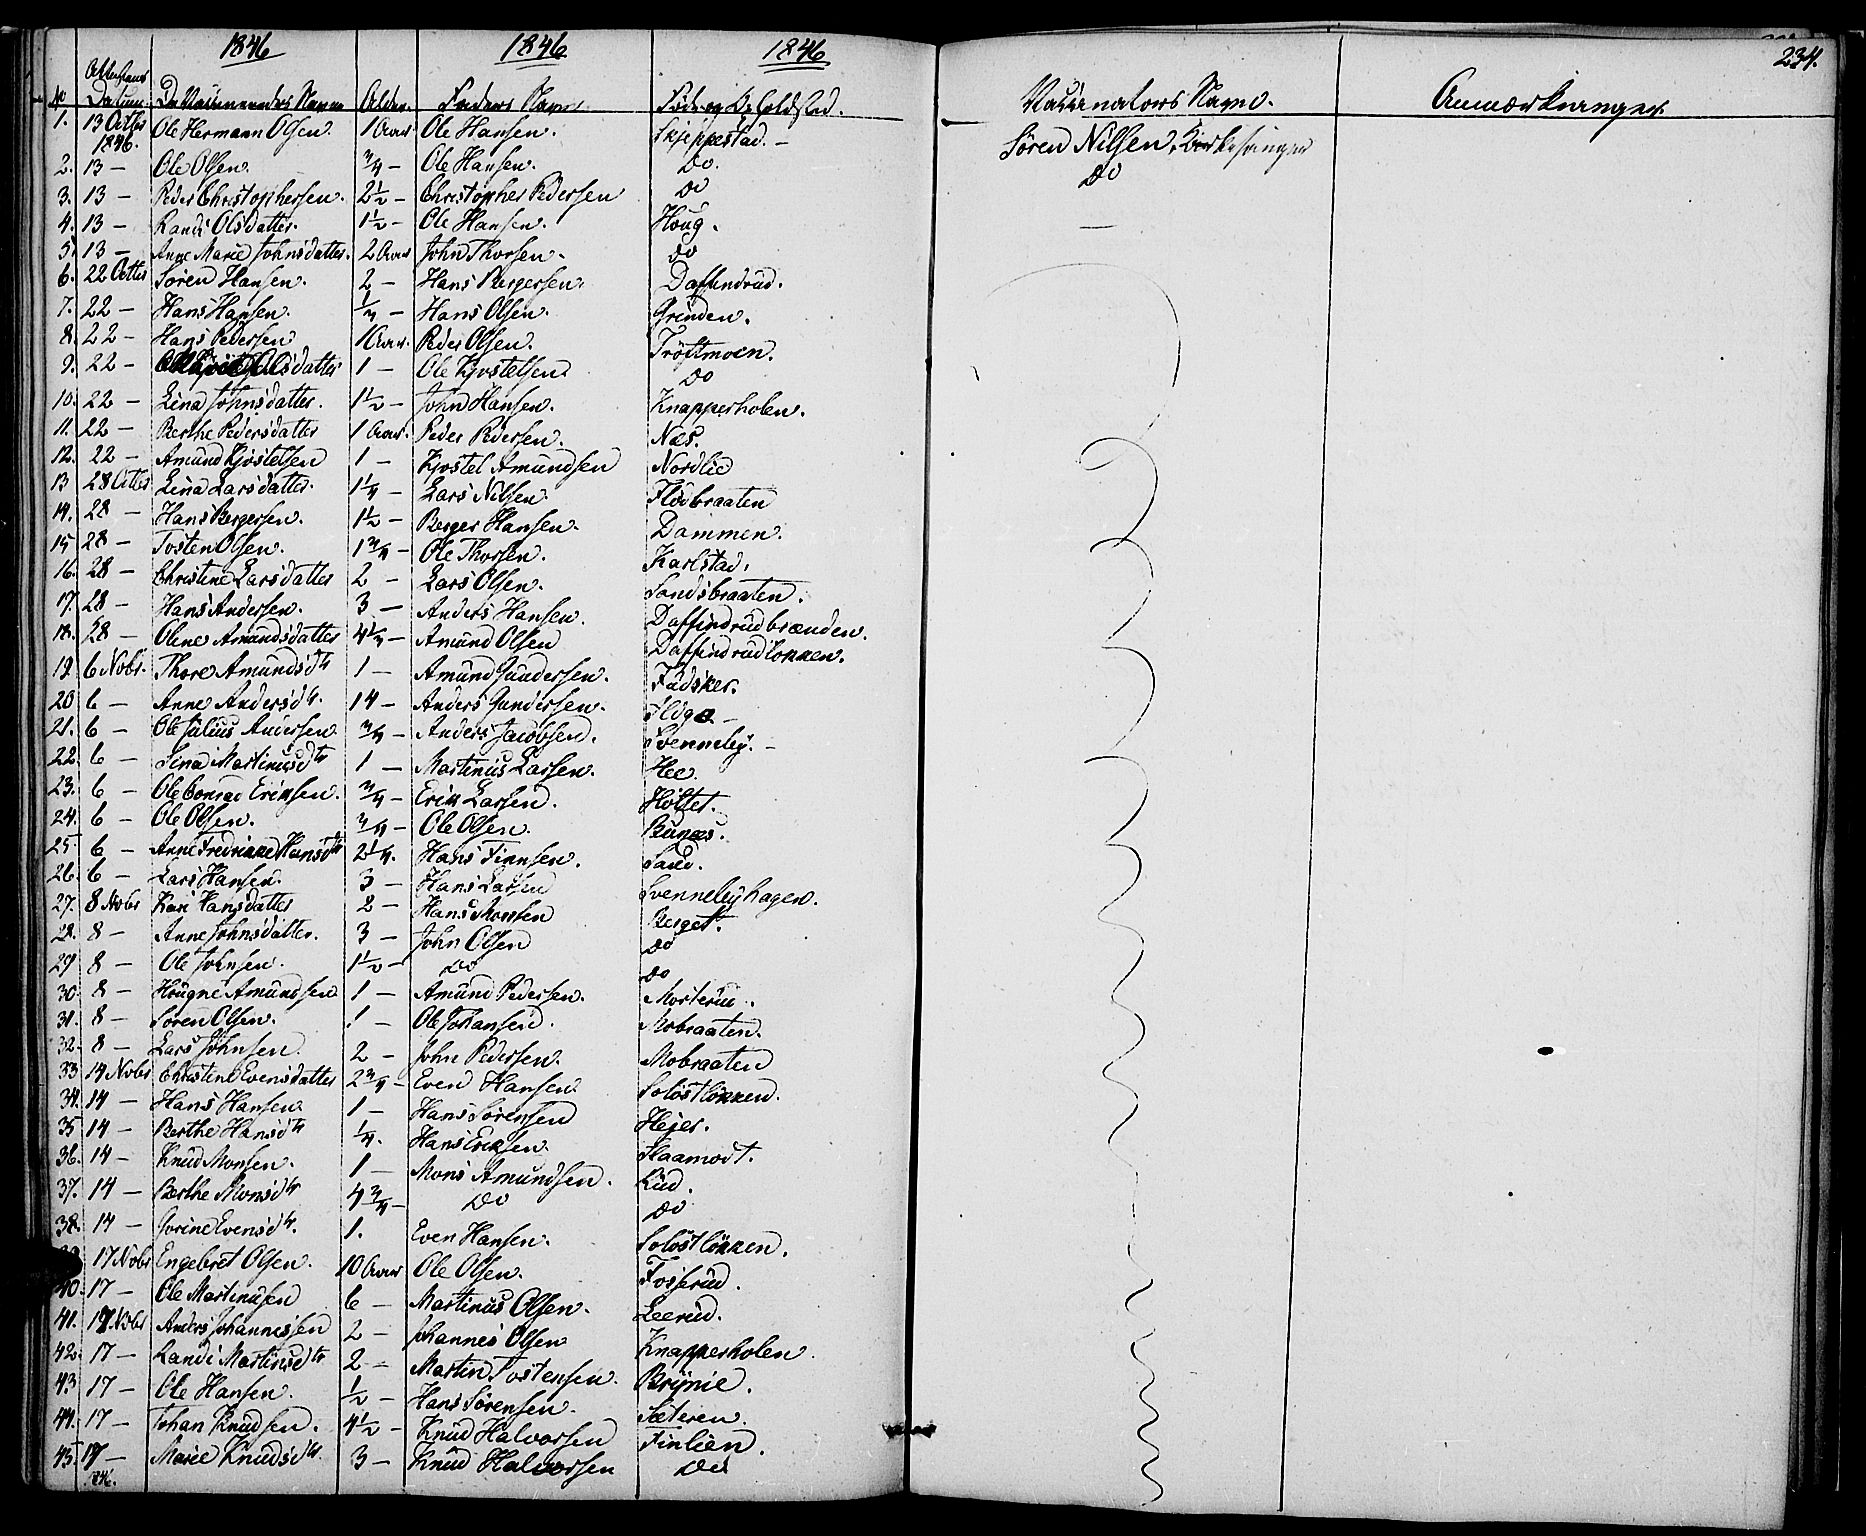 1846 1846 1846 234.
No Attestens Datum De Vaccineredes Navne Alder. Faders Navn Føde og Opholdsted. Vaccinators Navn. Anmærkninger.
1. 13 Octbr 1846. Ole Hermann Olsen. 1 Aar Ole Hansen. Skjeppestad. — Søren Nilsen, Kirkesanger
2. 13 — Ole Olsen. 3/4 — Ole Hansen. Do. Do
3. 13 — Peder Christophersen. 2 1/2 — Christopher Pedersen Do
4. 13 — Randi Olsdatter. 1 1/2 — Ole Hansen. Houg. —
5. 13 — Anne Marie Johnsdatter. 2 Aar John Thorsen. Do
6. 22 Octbr Søren Hansen. 2 — Hans Bergersen. Daffindrud.
7. 22 — Hans Hansen. 1/4 — Hans Olsen. Grinden.
8. 22 — Hans Pedersen 1 Aar. Peder Olsen. Tröftmoen.
9. 22 — Olsdatter 1 — Ole Kjostelsen Do
10. 22 — Lina Johnsdatter. 1 1/2 — John Hansen. Knapperholen.
11. 22 — Berthe Pedersdatter 1 Aar. Peder Pedersen. Næs.
12. 22 — Amund Kjostelsen 1 — Kjostel Amundsen Nordlie
13 28 Octbr Lina Larsdatter. 1 1/4 — Lars Nilsen. Flödbraaten
14. 28 — Hans Bergersen. 1 1/2 — Berger Hansen. Dammen.
15 28 — Tosten Olsen. 1 3/4 — Ole Thorsen. Karlstad.
16. 28 — Christine Larsdatter 2 — Lars Olsen. Sandsbraaten.
17. 28 — Hans Andersen. 3 — Anders Hansen. Daffindrudbrænden.
18. 28 — Olene Amundsdatter 4 1/2 — Amund Olsen Daffindrudlökken.
19. 6 Nobr. Thore Amundsdtr 1 — Amund Gundersen. Fudsker.
20 6 — Anne Andersdtr. 14 — Anders Gundersen.
21. 6 — Ole Julius Andersen 3/4 — Anders Jacobsen. Svenneby. —
22. 6 — Lina Martinusdtr 1 — Martinus Larsen. Hee.
23. 6 — Ole Conrad Eriksen. 3/4 — Erik Larsen. Höltet.
24. 6 — Ole Olsen. 3/4 — Ole Olsen. Bunæs.
25 6 — Anne Fredrikke Hansdtr 2 1/4. Hans Finnsen. Sand.
26. 6 — Lars Hansen. 3 — Hans Larsen Svennebyhagen.
27. 8 Nobr Kari Hansdatter 2 — Hans Monsen Berget.
28. 8 — Anne Johnsdatter. 3 — John Olsen Do
29 8 — Ole Johnsen. 1 1/2 — Do Do
30. 8 — Hougne Amundsen 1 — Amund Pedersen. Morterud.
31. 8 — Soren Olsen. 1 — Ole Johansen. Mobraaten.
32. 8 — Lars Johnsen. 2 — John Pedersen. Mobraaten
33 14 Nobr Christine Evensdatter 2 3/4 — Even Hansen Solöstlökken.
34. 14 — Hans Hansen. 1 — Hans Sörensen Hejer.
35 14 — Berthe Hansdtr 1/4. Hans Eriksen. Flaamodt.
36. 14 — Knud Monsen. 1 — Mons Amundsen. Rud.
37. 14 — Berthe Monsdtr 4 3/4 — Do Do
38. 14 — Jorine Evensdtr. 1. Even Hansen. Solöstlökken.
17 Nobr Engebret Olsen. 10 Aar Ole Olsen. Fosserud.
40. 17 — Ole Martinusen 6 — Martinus Olsen. Leerud.
41. 17. Nobr Anders Johannessen 2 — Johannes Olsen Knapperholen.
42. 17 — Randi Martinsdtr 2 — Martin Tostensen. Brynie.
43 17 — Ole Hansen. 1/2 — Hans Sörensen. Sæteren.
44. 17 — Johan Knudsen. 4 1/2 — Knud Halvorsen Finlien.
45. 17 — Marie Knudsdtr. 3 — Knud Halvorsen Do
1846.